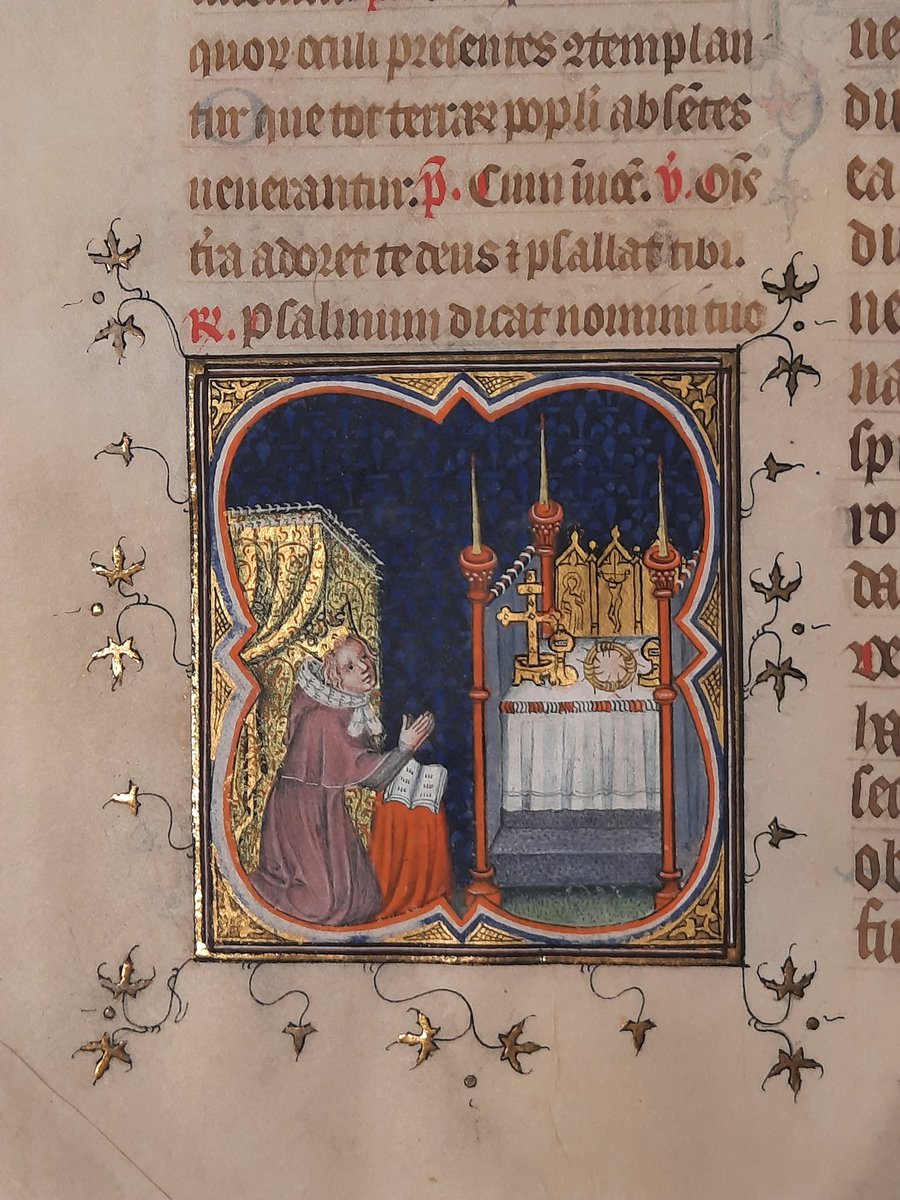 quoꝝ oculi presentes ꝯtemplan-
tur que tot terrarꝝ popl̃i absẽtes
uenerantur: p̃. Cum iuoc̃. v̓. Oĩs
t̓ra adoret te deus ⁊ psallat tibi.
R. Psalmum dicat nomini tuo
ne
du
ea
di
ne
na
spi
ro
da
lra
sec
ob
fu